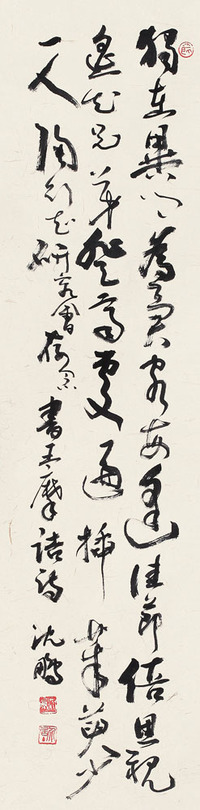 獨在異鄉為異客每逢佳節倍思親
遙知兄弟登高處遍插茱萸少
一人 陶行知研究會 書王摩詰詩 沈鵬